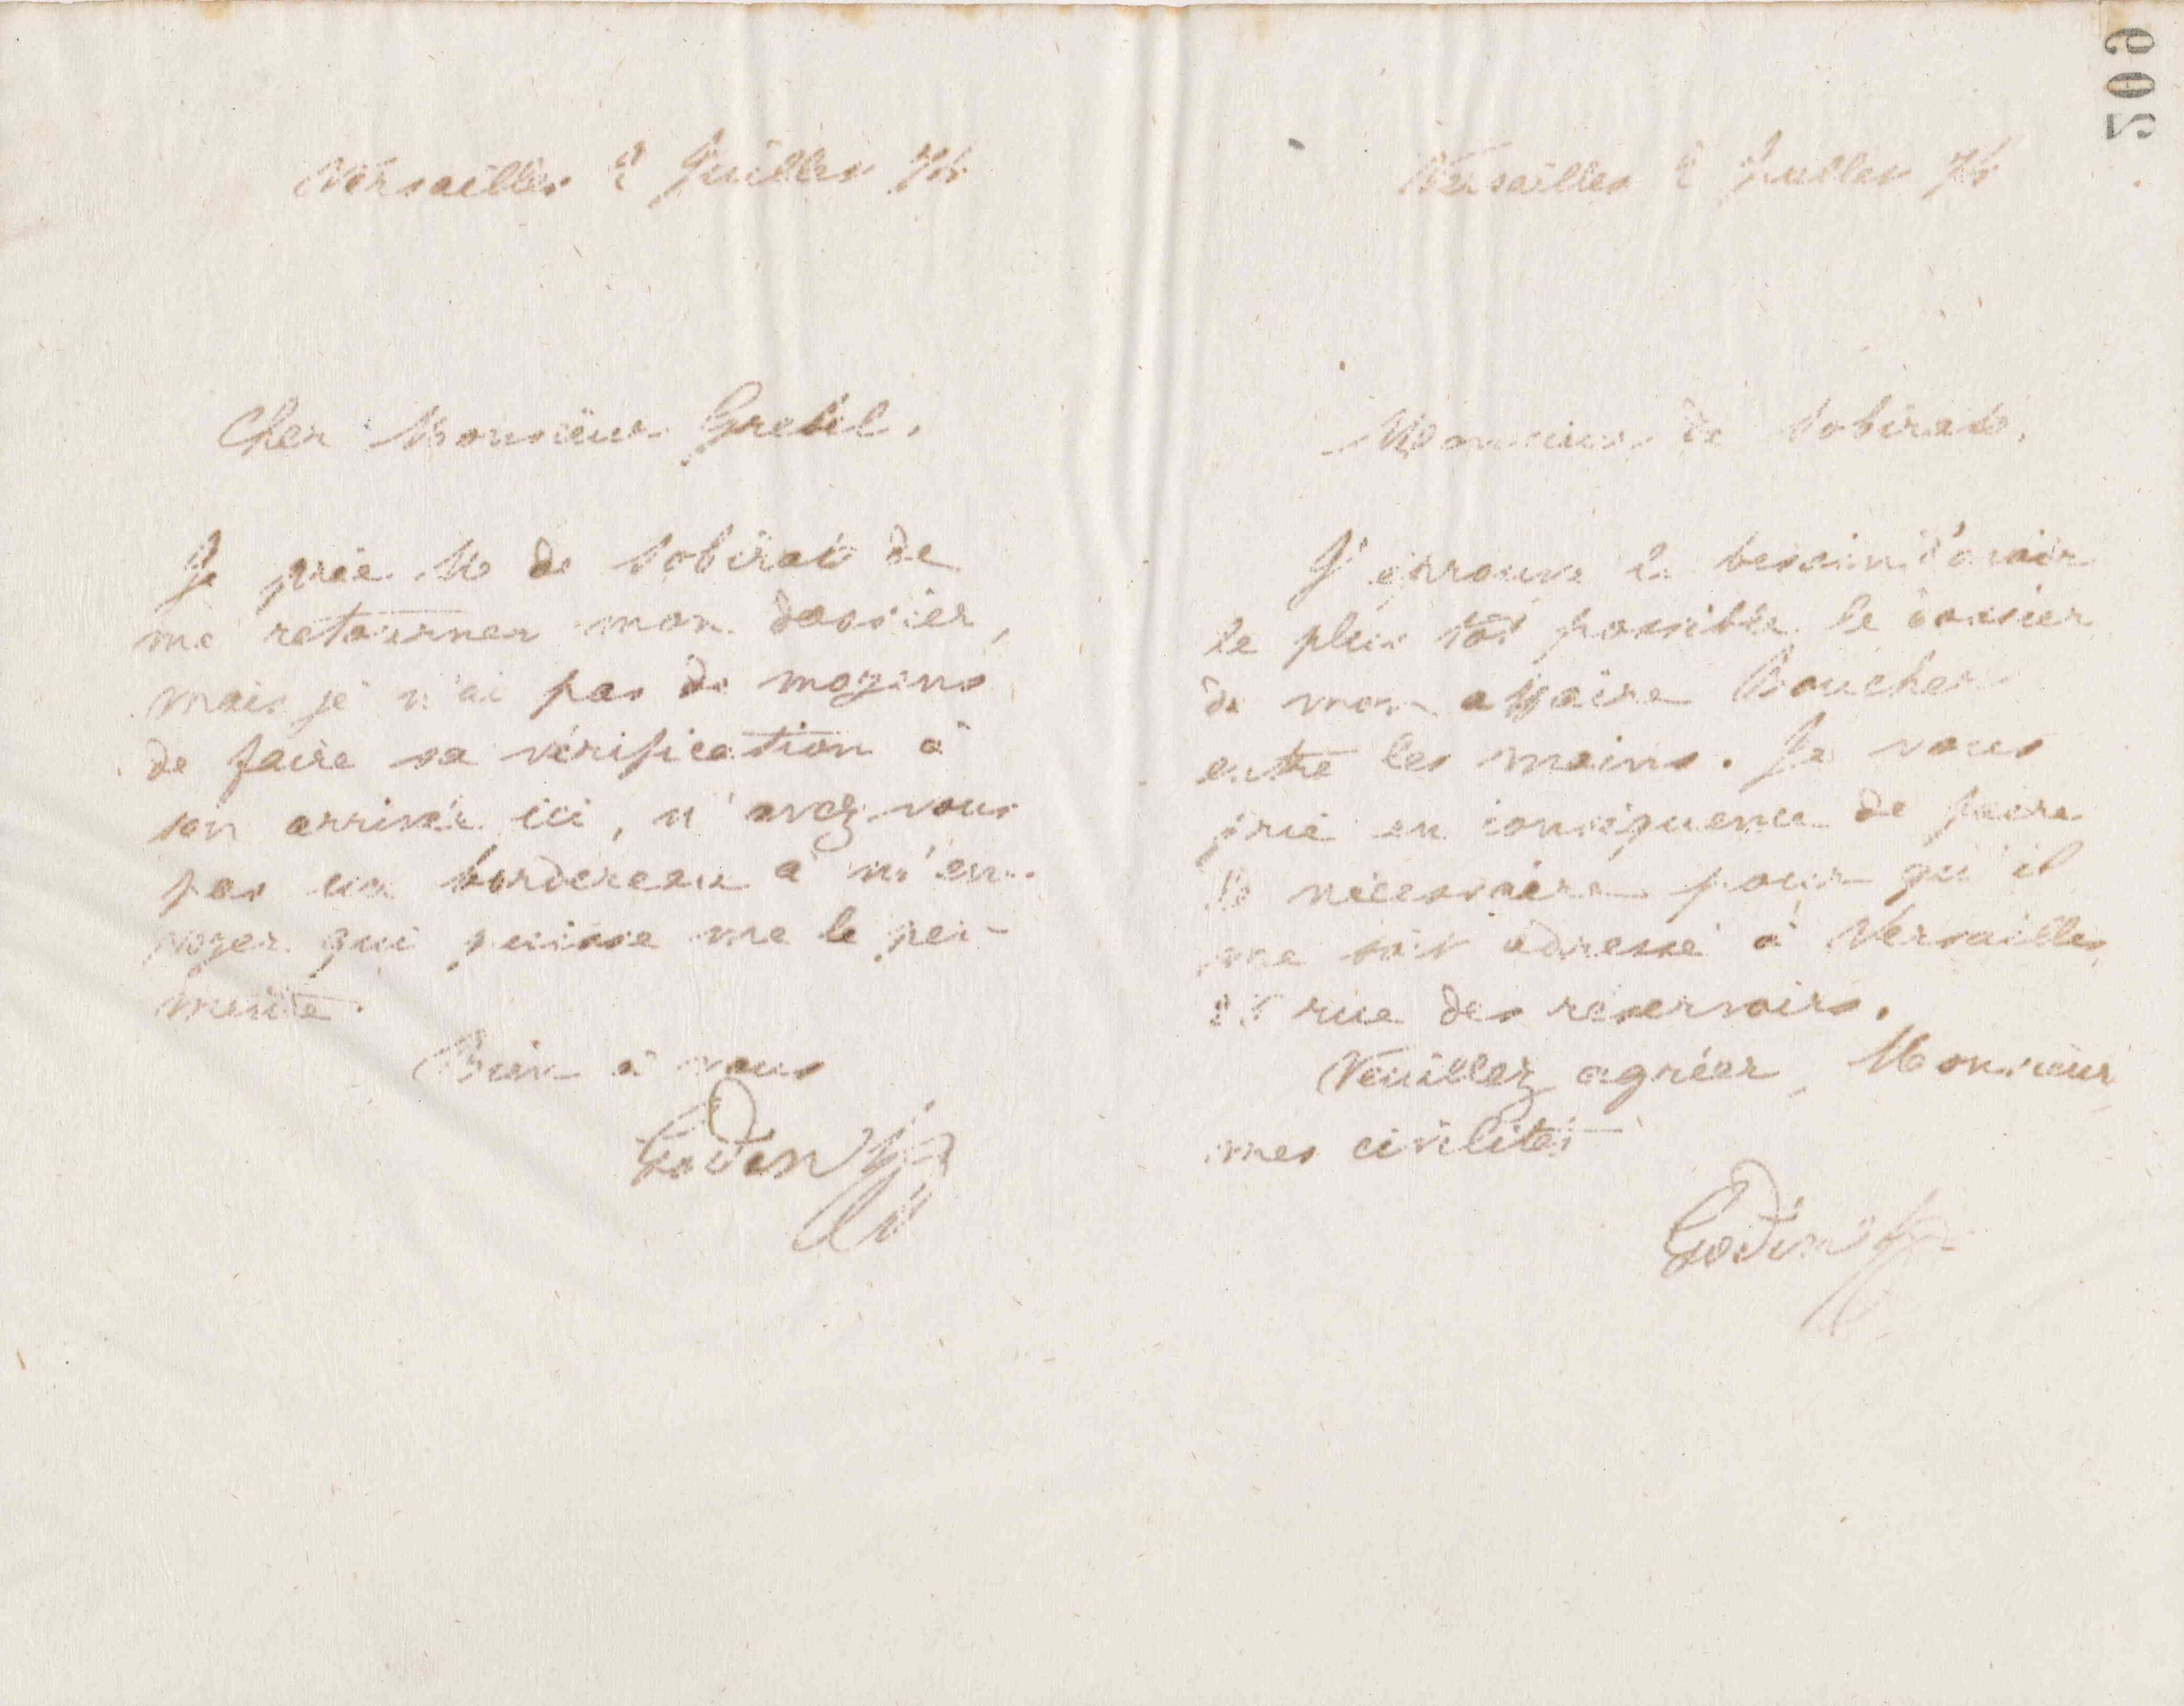 Versailles 2 Juillet 74
Cher Monsieur Grebel,
Je prie M de Sobirats de
me retourner mon dossier,
mais je n'ai pas de moyens
de faire sa vérification à
son arrivée ici, n'avez vous
pas un bordereau à m'en-
voyer qui puisse me le per-
mettre.
Bien à vous
Godin
209
Versailles 2 Juillet 74
Monsieur de Sobirats,
J'éprouve le besoin d'avoir
le plus tôt possible le dossier
de mon affaire Boucher
entre les mains. Je vous
prie en conséquence de faire
le nécessaire pour qu'il
me soit adressé à Versailles
rue des reservoirs.
Veuillez agréer, Monsieur
mes civilités
Godin